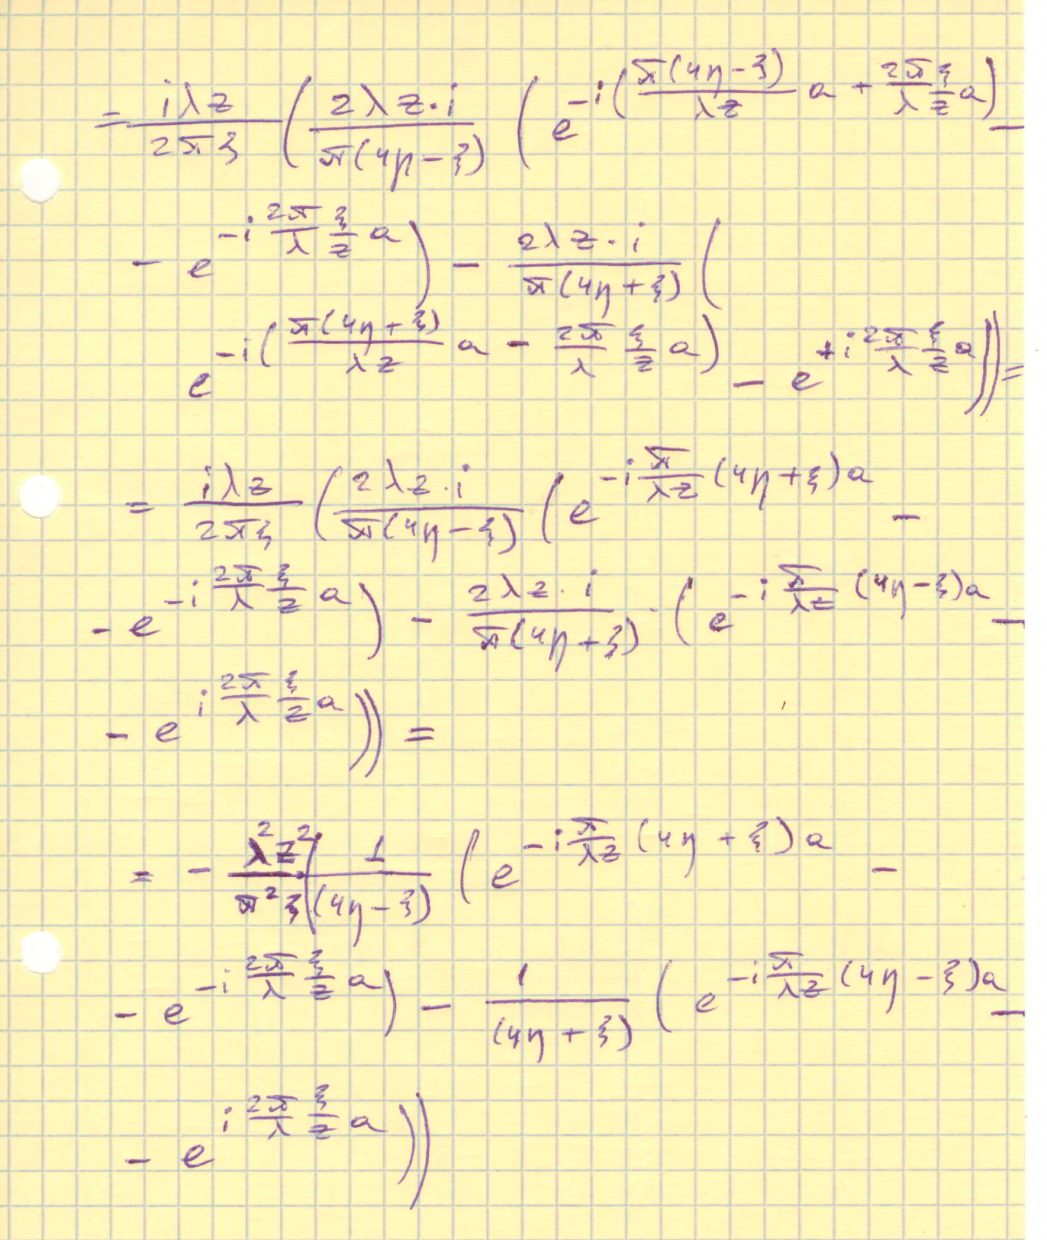 = \frac{iλz}{2πξ} ( \frac{2λz·i}{π(4η-ξ)} ( e^{-i(\frac{π(4η-ξ)}{λz} a + \frac{2π}{λ} \frac{ξ}{z} a)} -
- e^{-i \frac{2π}{λ} \frac{ξ}{z} a} ) - \frac{2λz·i}{π(4η+ξ)} (
e^{-i(\frac{π(4η+ξ)}{λz} a - \frac{2π}{λ} \frac{ξ}{z} a)} - e^{+i \frac{2π}{λ} \frac{ξ}{z} a} )) =
= \frac{iλz}{2πξ} ( \frac{2λz·i}{π(4η-ξ)} ( e^{-i \frac{π}{λz} (4η+ξ)a} -
- e^{-i \frac{2π}{λ} \frac{ξ}{z} a} ) - \frac{2λz·i}{π(4η+ξ)} · ( e^{-i \frac{π}{λz} (4η-ξ)a} -
- e^{i \frac{2π}{λ} \frac{ξ}{z} a} )) =
= - \frac{λ^2 z^2}{π^2 ξ} ( \frac{1}{(4η-ξ)} ( e^{-i \frac{π}{λz} (4η+ξ)a} -
- e^{-i \frac{2π}{λ} \frac{ξ}{z} a} ) - \frac{1}{(4η+ξ)} ( e^{-i \frac{π}{λz} (4η-ξ)a} -
- e^{i \frac{2π}{λ} \frac{ξ}{z} a} ))